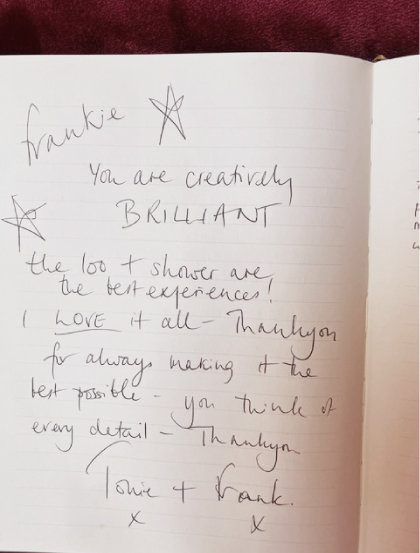 frankie
You are creatively
BRILLIANT
the loo + shower are
the best experiences!
I LOVE it all - Thankyou
for always making it the
best possible - you think of
every detail - Thankyou
Tonie + Frank.
x x